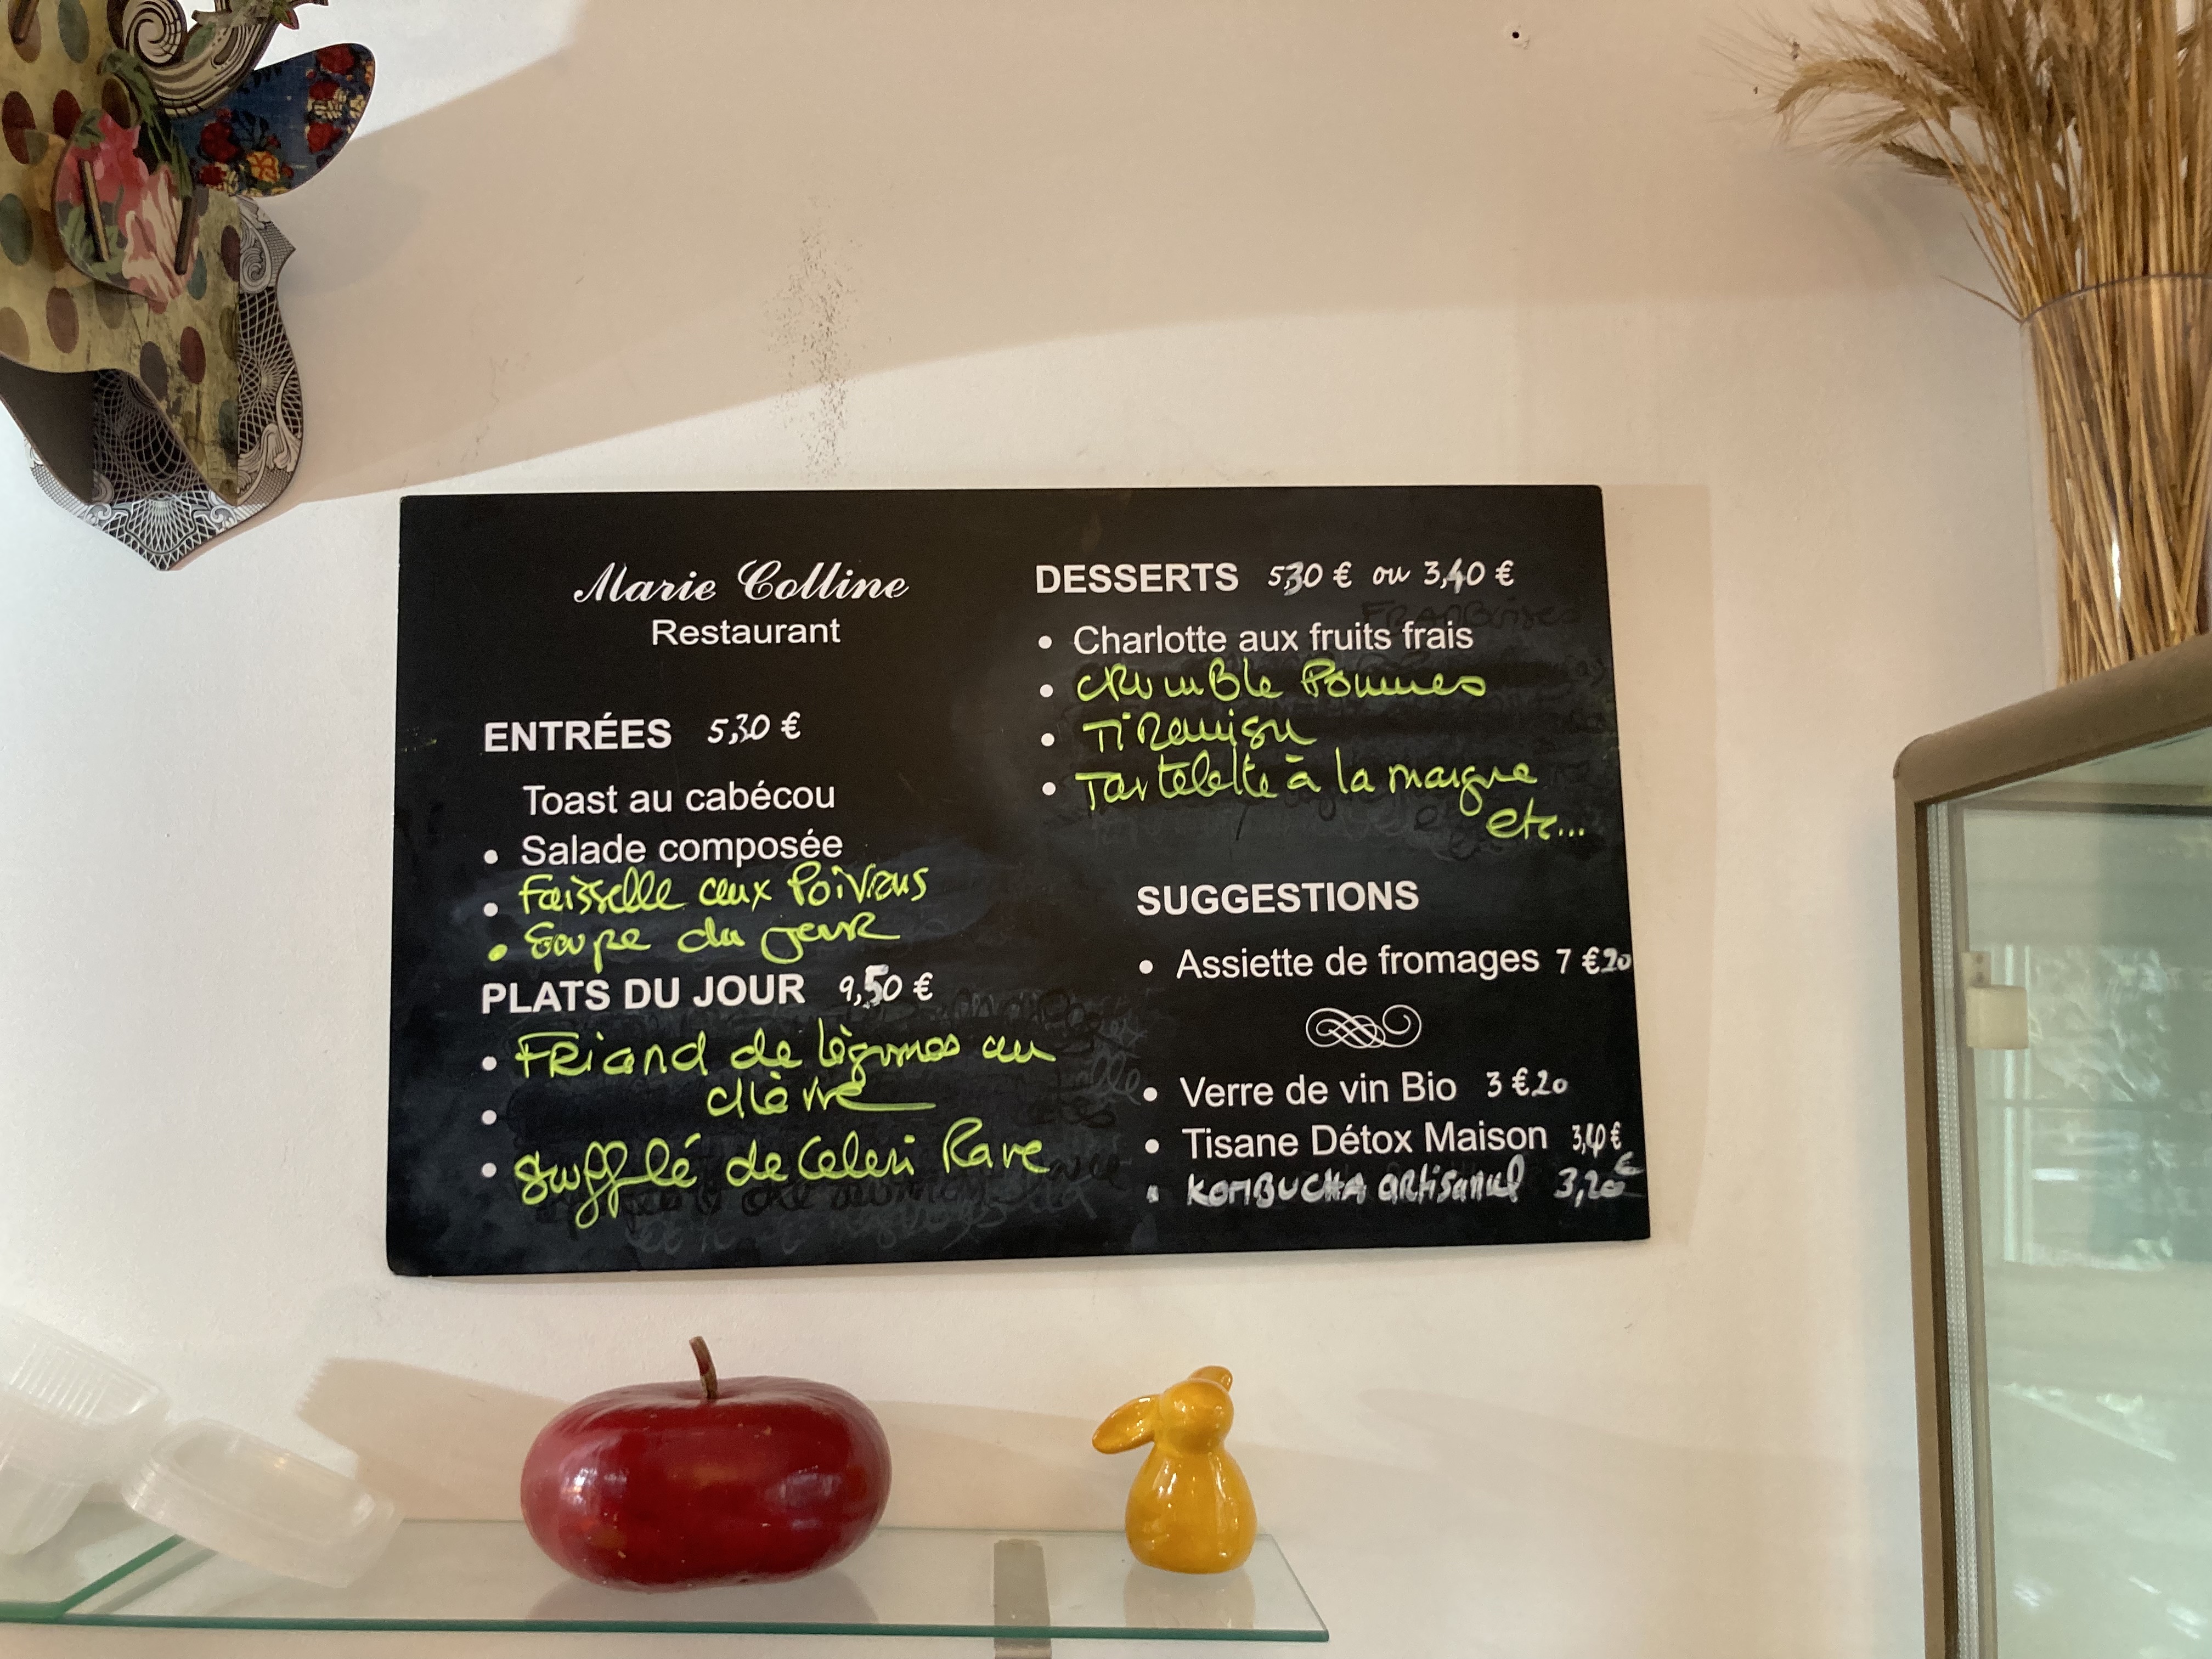 Marie Colline
Restaurant
ENTRÉES 5,30 €
Toast au cabécou
• Salade composée
• Faisselle aux Poivrons
• Soupe du jour
PLATS DU JOUR 9,50 €
• FRiand de légumes au
• chèvre
• Soufflé de Celeri Rave
DESSERTS 5,30 € ou 3,40 €
FRAMBoises
• Charlotte aux fruits frais
• CRumBle Pommes
• TiRamisu
• Tartelette à la
etc...
SUGGESTIONS
• Assiette de fromages 7 €20
• Verre de vin Bio 3 €20
• Tisane Détox Maison 3,40 €
• KOMBUCHA aRtisanal 3,20 €